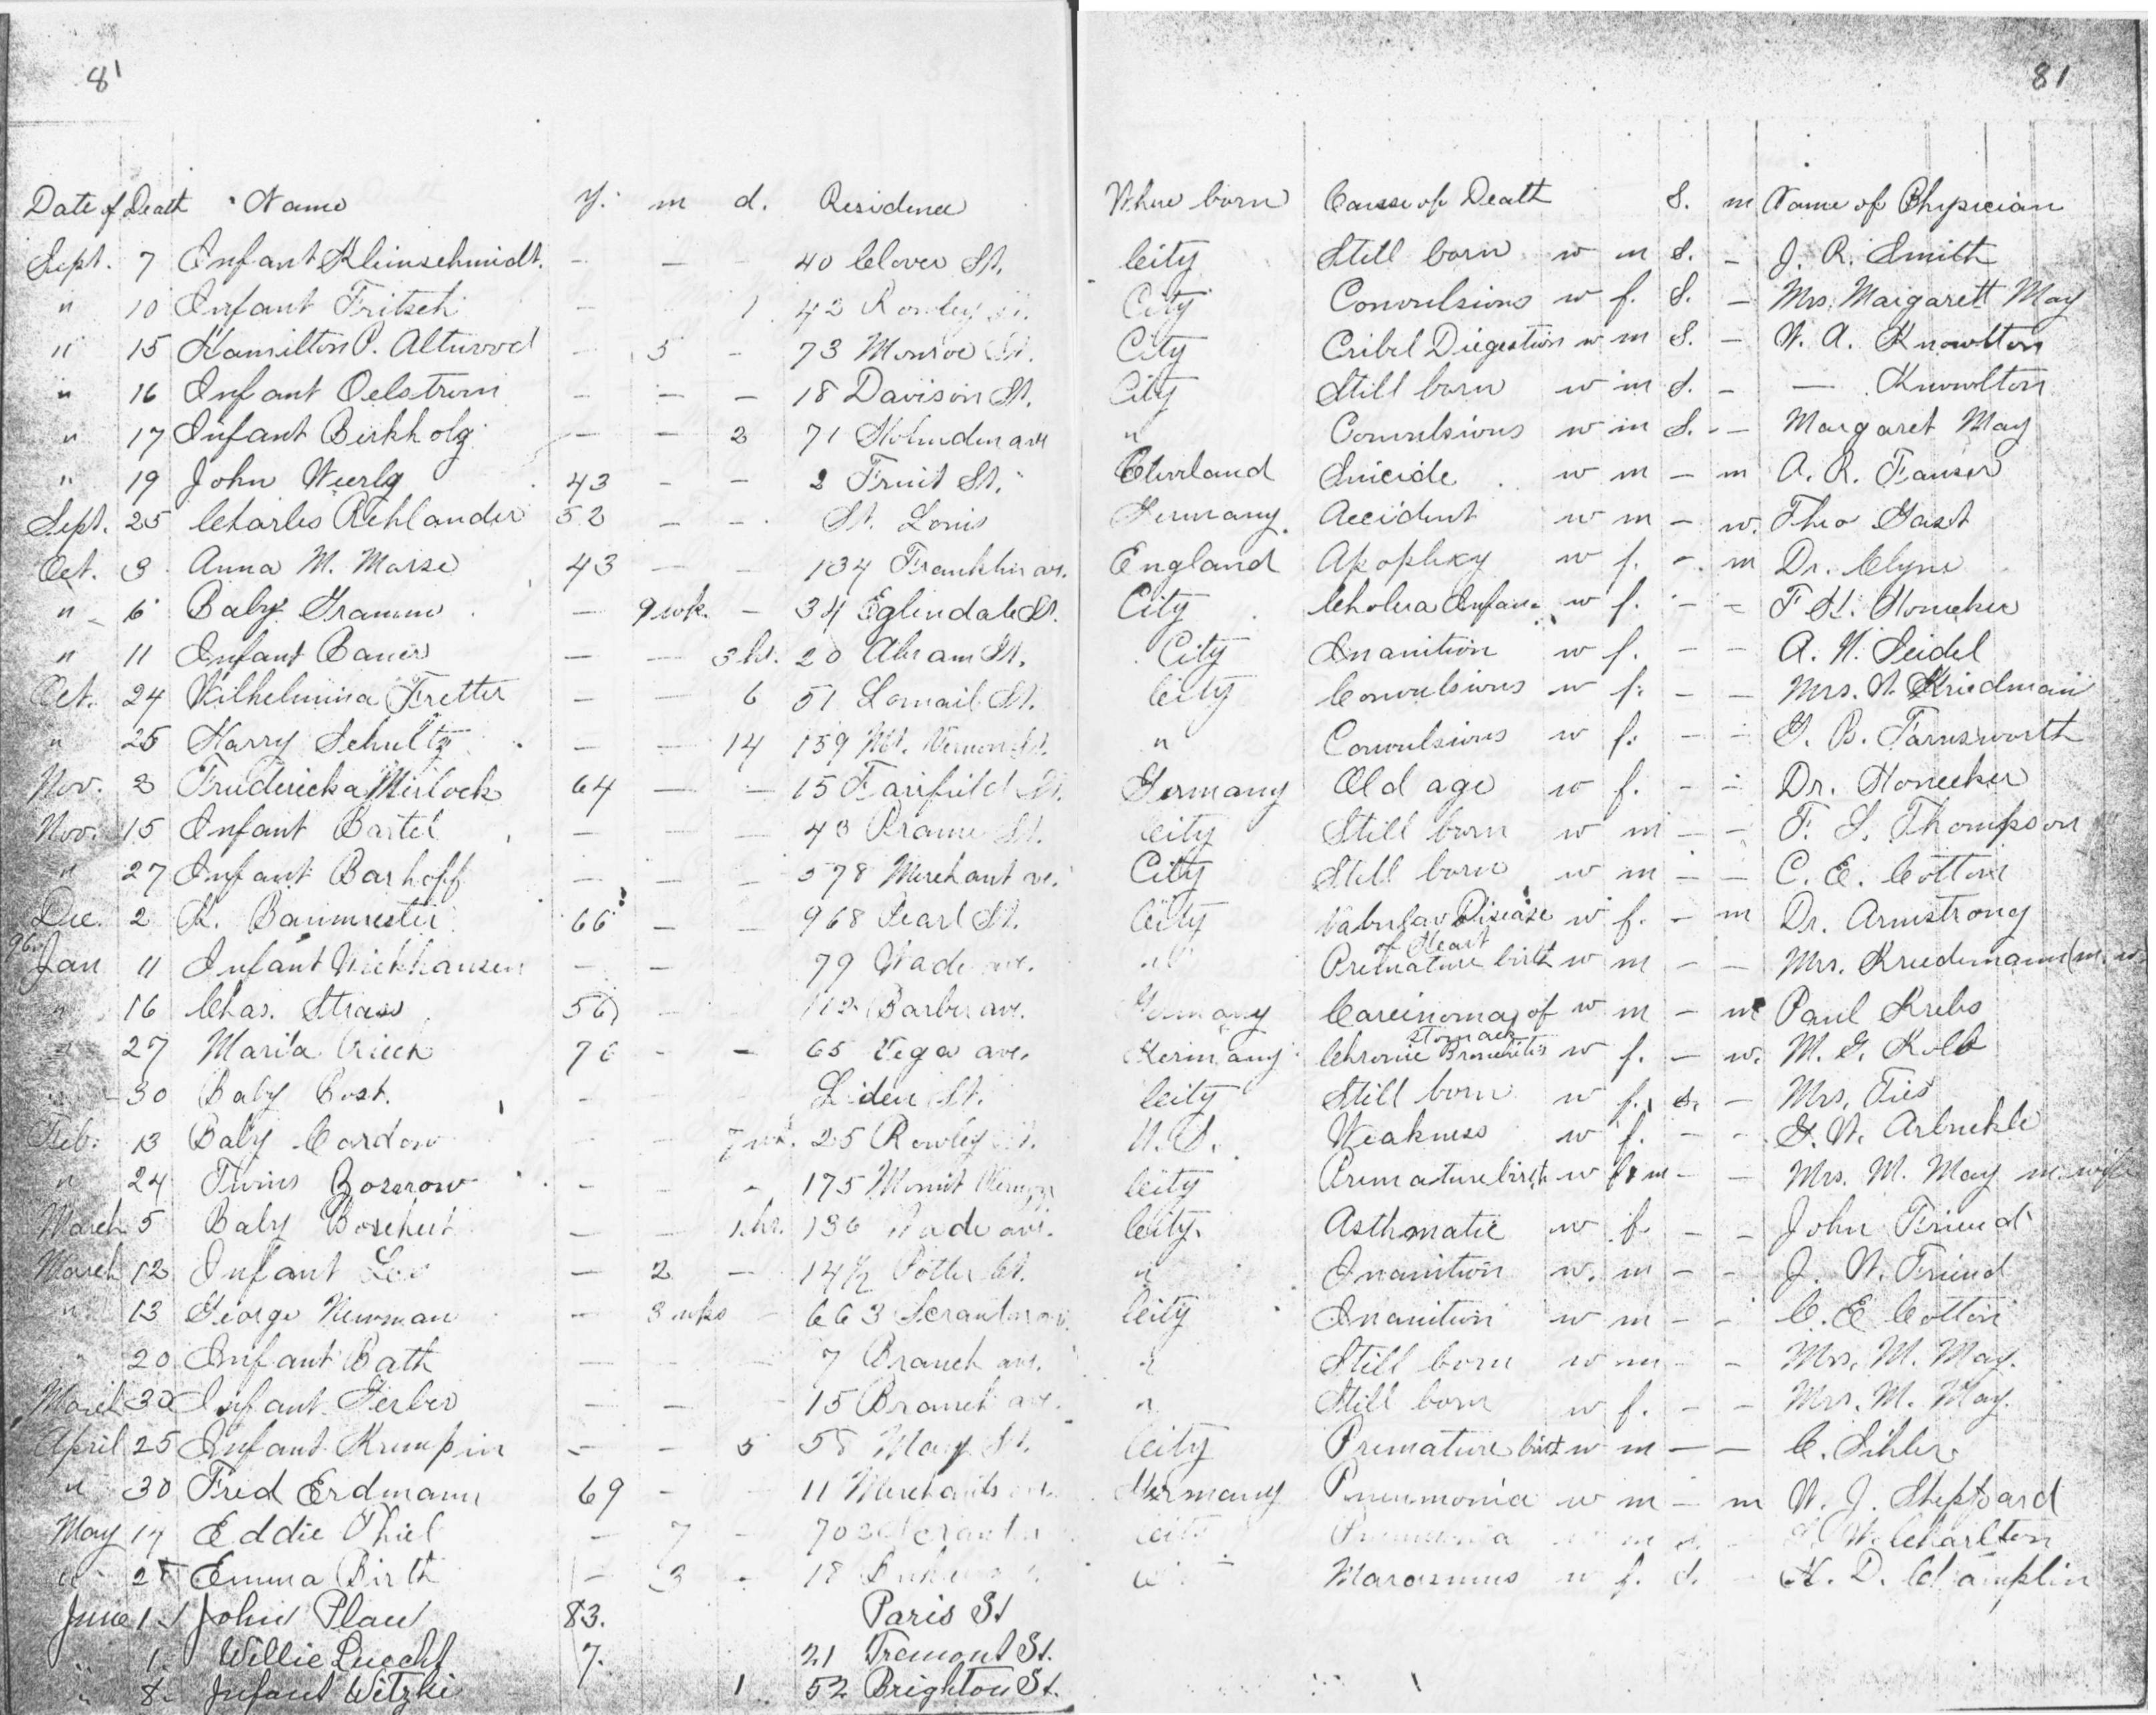 81 81
Date of Death Name y. m d. Residence Where born Cause of Death S. m Name of Physician
Sept. 7 Infant Kleinschmidt. - - 40 Clover St. City Still born w m S. - J. R. Smith
" 10 Infant Fritsch - 1 42 Rowley St. City Convulsions w f. S. - Mrs. Margarett May
" 15 Hamilton P. Altwood - 5 - 73 Monroe St. City Digestion w m S. - W. A. Knowlton
" 16 Infant Oelstrom - - - 18 Davison St. City Still born w m S. - — Knowlton
" 17 Infant Birkholz - - 2 71 Holmden ave " Convulsions w m S. - Margaret May
" 19 John 43 - - 2 Fruit St. Cleveland Suicide w m - m A. R.
Sept. 25 Charles Rehlander 52 - - St. Louis Germany Accident w m - w. Theo Gast
Oct. 3 Anna M. Morse 43 - - 134 Franklin ave. England Apoplexy w f. - m Dr. Clyne
" 6 Baby Gramm - 9 wk. - 34 Eglindale St. City Cholera Infan. w f. - - F H. Honecker
" 11 Infant Bauer - - 3 hr. 20 Abram St. City Inanition w f. - - A. W. Seidel
Oct. 24 Wilhelmina Fretter - - 6 51 St. City Convulsions w f. - - Mrs. W. Kriedman
" 25 Harry Schultz - - 14 159 Mt. Vernon St. " Convulsions w f. - - G. B. Farnsworth
Nov. 2 Fredericka Mirlock 64 - - 15 Fairfield St. Germany Old age w f. - - Dr. Honecker
Nov. 15 Infant Bartel - - - 43 St. City Still born w m - - F. S. Thompson
" 27 Infant Barhoff - - - 378 Merchant ave. City Still born w m - - C. E. Cotton
Dec. 2 K. Baumeister 66 - - 968 Pearl St. City Disease w f. - m Dr. Armstrong
of Heart
96. Jan 11 Infant Wickhausen - - 79 Wade ave. " Premature birth w m - - Mrs. Kriedemann (m. w.
" 16 Chas. Strass 56 - 112 Barber ave. Germany Carcinoma of w m - m Paul Krebs
stomach
" 27 Maria 76 - - 65 Vega ave. Germany Chronic Bronchitis w f. - w. M. G. Kolb
" 30 Baby Post. - Liden St. City Still born w f. s. - Mrs. Ties
Feb. 13 Baby Cordow - - 7 wk. 25 Rowley St. U. S. Weakness w f. - - G. W. Arbuckle
" 24 Twins Boserow - - - 175 Mount Vernon City Premature birth w f. m - - Mrs. M. May m. wife
March 5 Baby Borchert - - 1 hr. 136 Wade ave. City. Asthmatic w f. - - John Friend
March 12 Infant - 2 - 14½ Potter St. " Inanition w. m - - J. W. Friend
" 13 George Newman - 3 wks - 663 Scranton ave. City Inanition w m - - C. E. Cotton
" 20 Infant Bath - - - 7 Branch ave. " Still born w m - - Mrs. M. May.
March 30 Infant Gerber - - - 15 Branch ave. " Still born w f. - - Mrs. M. May.
April 25 Infant Krumpin - - 5 58 May St. City Premature birt w m - - C. Sihler
" 30 Fred Erdmann 69 - 11 Merchants ave. Germany Pneumonia w m - m W. J. Sheppard
May 17 Eddie Thiel - 7 - Scranton City Pneumonia w m s. - W. Charlton
" 28 Emma Birth 1 - 3 - 18 " Marasmus w f. s. - H. D. Champlin
June 1 John Plau 83. Paris St
" 1. Willie Luecht 7. 21 Tremont St.
" 8. Infant Witzki 1 52 Brighton St.